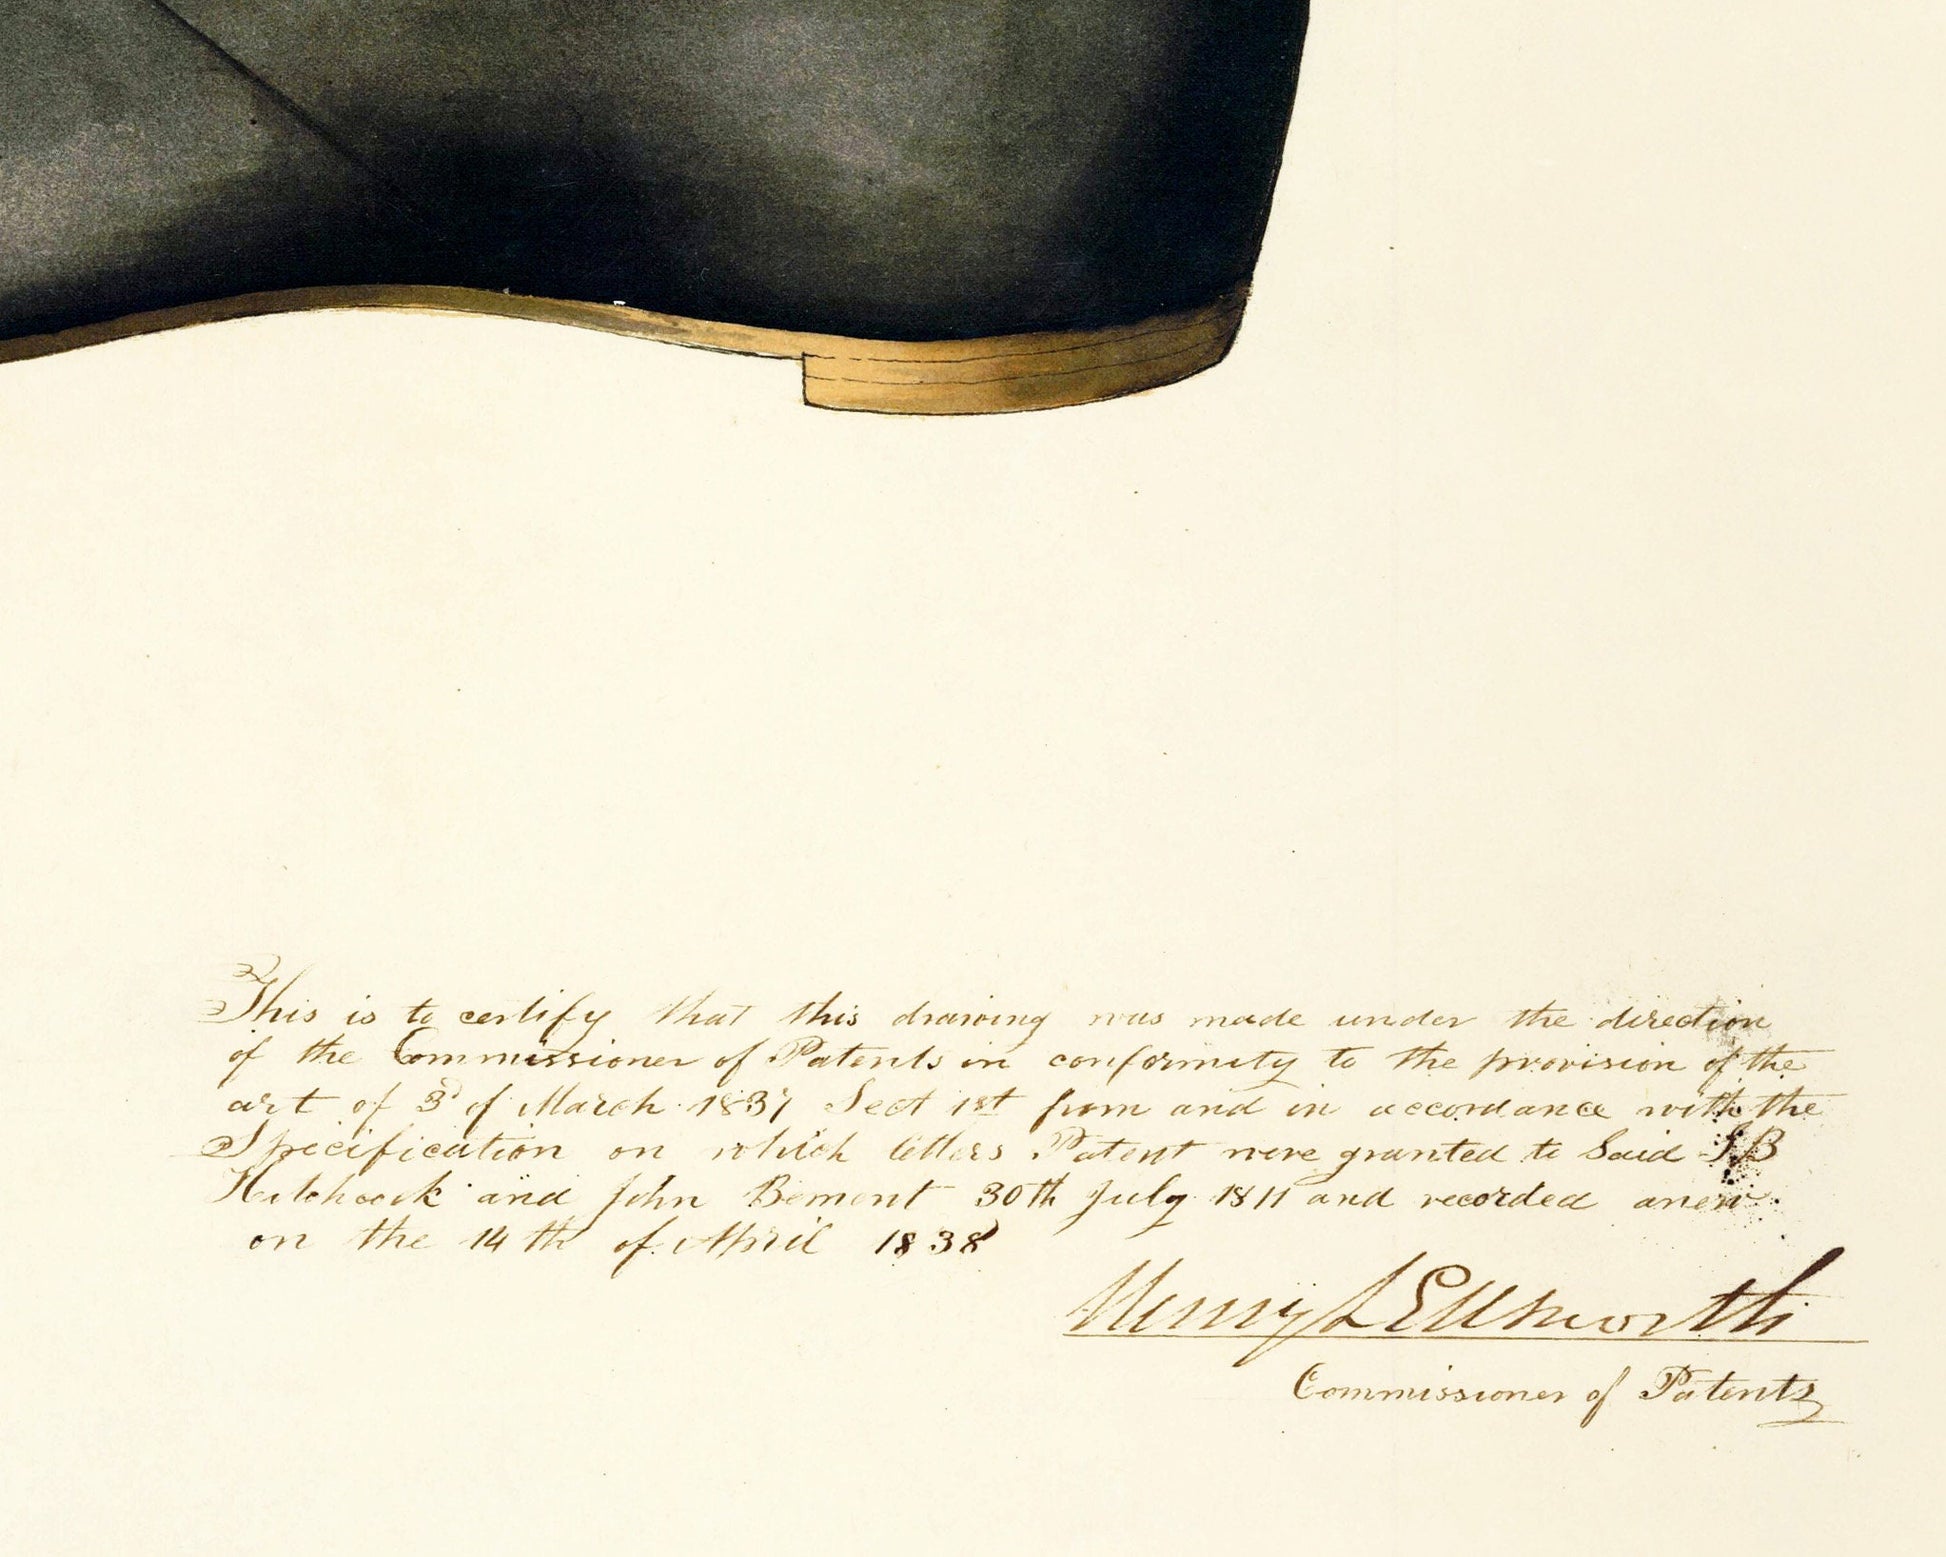 This is to certify that this drawing was made under the direction
of the Commissioner of Patents in conformity to the provision of the
act of 3d of March 1837 Sect 1st from and in accordance with the
Specification on which letters Patent were granted to Said SB
Hitchcock and John Bement 30th July 1811 and recorded anew
on the 14th of April 1838
Henry L Ellsworth
Commissioner of Patents